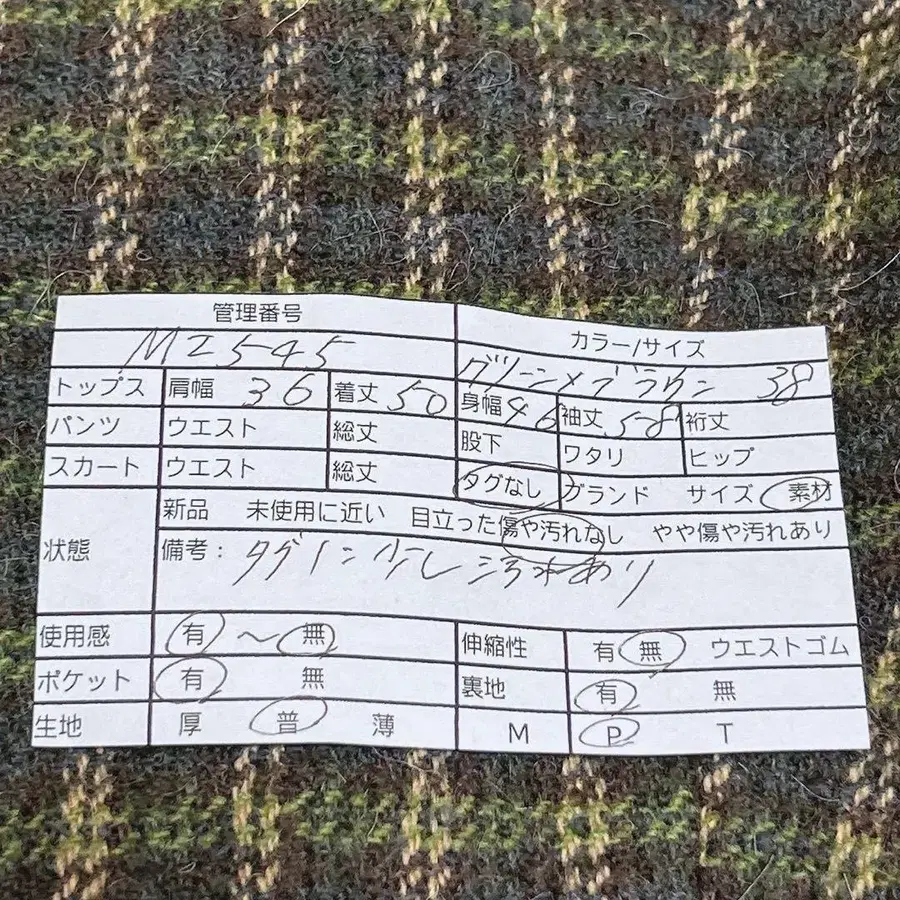 管理番号 カラー/サイズ
M2545 グリーン×ブラウン 38
トップス 肩幅 36 着丈 50 身幅 46 袖丈 58 裄丈
パンツ ウエスト 総丈 股下 ワタリ ヒップ
スカート ウエスト 総丈 タグなし グランド サイズ 素材
状態 新品 未使用に近い 目立った傷や汚れなし やや傷や汚れあり
備考: 少し汚れあり
使用感 有 〜 無 伸縮性 有 無 ウエストゴム
ポケット 有 無 裏地 有 無
生地 厚 普 薄 M P T